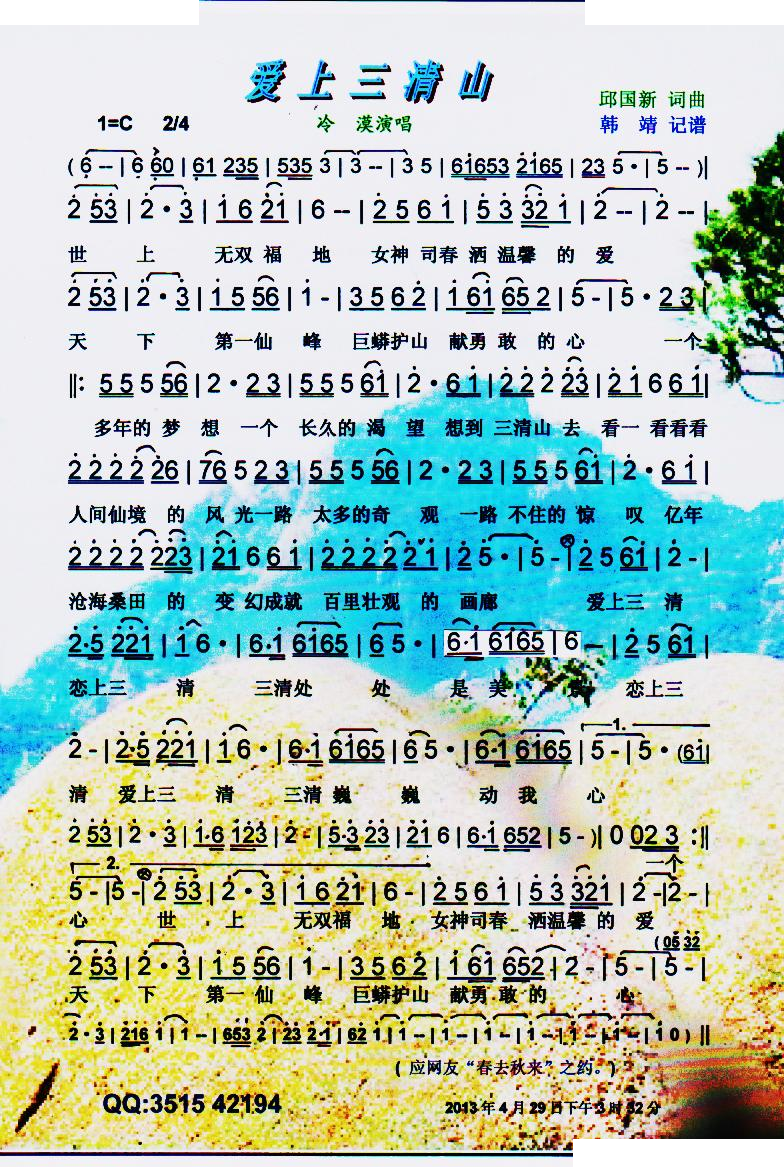 爱上三清山
邱国新 词曲
1=C 2/4 冷 漠演唱 韩 靖 记谱
(6 -- | 6 60 | 61 235 | 535 3 | 3 -- | 3 5 | 61653 2165 | 23 5 · | 5 -- )||
2 53 | 2 · 3 | 1 6 21 | 6 -- | 2 5 6 1 | 5 3 32 1 | 2 -- | 2 -- |
世 上 无双 福 地 女神 司春 洒 温馨 的 爱
2 53 | 2 · 3 | 1 5 56 | 1 - | 3 5 6 2 | 1 61 65 2 | 5 - | 5 · 2 3 |
天 下 第一仙 峰 巨蟒护山 献勇 敢 的 心 一个
||: 5 5 5 56 | 2 · 2 3 | 5 5 5 61 | 2 · 6 1 | 2 2 2 23 | 2 1 6 6 1 |
多年的 梦 想 一个 长久的 渴 望 想到 三清山 去 看一 看看看
2 2 2 2 26 | 76 5 2 3 | 5 5 5 56 | 2 · 2 3 | 5 5 5 61 | 2 · 6 1 |
人间仙境 的 风 光一路 太多的奇 观 一路 不住的 惊 叹 亿年
2 2 2 2 223 | 21 6 6 1 | 2 2 2 2 2 1 | 2 5 · | 5 - | 2 5 61 | 2 - |
沧海桑田 的 变 幻成就 百里壮观 的 画廊 爱上三 清
2·5 221 | 1 6 · | 6·1 6165 | 6 5 · | 6·1 6165 | 6 — | 2 5 61 |
恋上三 清 三清处 处 是 美 恋上三
2 - | 2·5 221 | 1 6 · | 6·1 6165 | 6 5 · | 6·1 6165 | 5 - | 5 · (61 |
1.
清 爱上三 清 三清 巍 巍 动 我 心
2 53 | 2 · 3 | 1·6 123 | 2 - | 5·3 23 | 21 6 | 6·1 652 | 5 - )| 0 02 3 :||
2. 一个
5 - | 5 - | 2 53 | 2 · 3 | 1 6 21 | 6 - | 2 5 6 1 | 5 3 321 | 2 - | 2 - |
心 世 上 无双福 地 女神司春 洒温馨 的 爱
(05 32
2 53 | 2 · 3 | 1 5 56 | 1 - | 3 5 6 2 | 1 61 652 | 2 - | 5 - | 5 - |
天 下 第一 仙 峰 巨蟒护山 献勇 敢 的 心
2 · 3 | 216 1 | 1 -- | 653 2 | 23 2·1 | 62 1 | 1 -- | 1 -- | 1 -- | 1 -- | 1 -- | 1 0 ) ||
( 应网友“春去秋来”之约。)
QQ:3515 42194 2013年4月29日下午3时32分